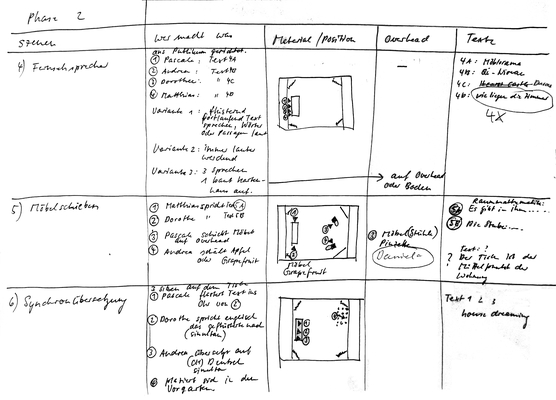 Phase 2
Szenen
wer macht was
Material / Position
Overhead
Text
4) Fernsehsprecher
ins Publikum gerichtet.
① Pascale, Text 4A
② Andrea, Text 4B
③ Dorothe " 4C
④ Matthias " 4D
Variante 1: flüsternd
fortlaufend Text
sprechen, Wörter
oder Passagen laut
Variante 2: immer lauter
werdend
Variante 3: 3 Sprecher
—
auf Overhead
oder Boden
4A: Möblorama
4B:
4C:
4D: wie liegen die Zimmer
4X
5) Möbelschieben
① Matthias spricht Text 5A
② Dorothe " Text 5B
③ Pascale schiebt Möbel
auf Overhead
④ Andrea schält Apfel
oder Grapefruit
Möbel
Grapefruit
③ Möbel (Stühle)
Pinzette
Daniela
5A Es gibt in ihm .....
5B Die Stube...
Text: !
? Der Tisch ist der
Mittelpunkt der
Wohnung
6) Synchronübersetzung
3 sitzen auf dem Tisch
① Pascale flüstert Text ins
Ohr von ②
② Dorothe spricht englisch
das geflüsterte nach
(simultan)
③ Andrea übersetzt auf
(CH) Deutsch
simultan
④ Matthias sitzt in den
Vorgarten
Text 1 2 3
house dreaming